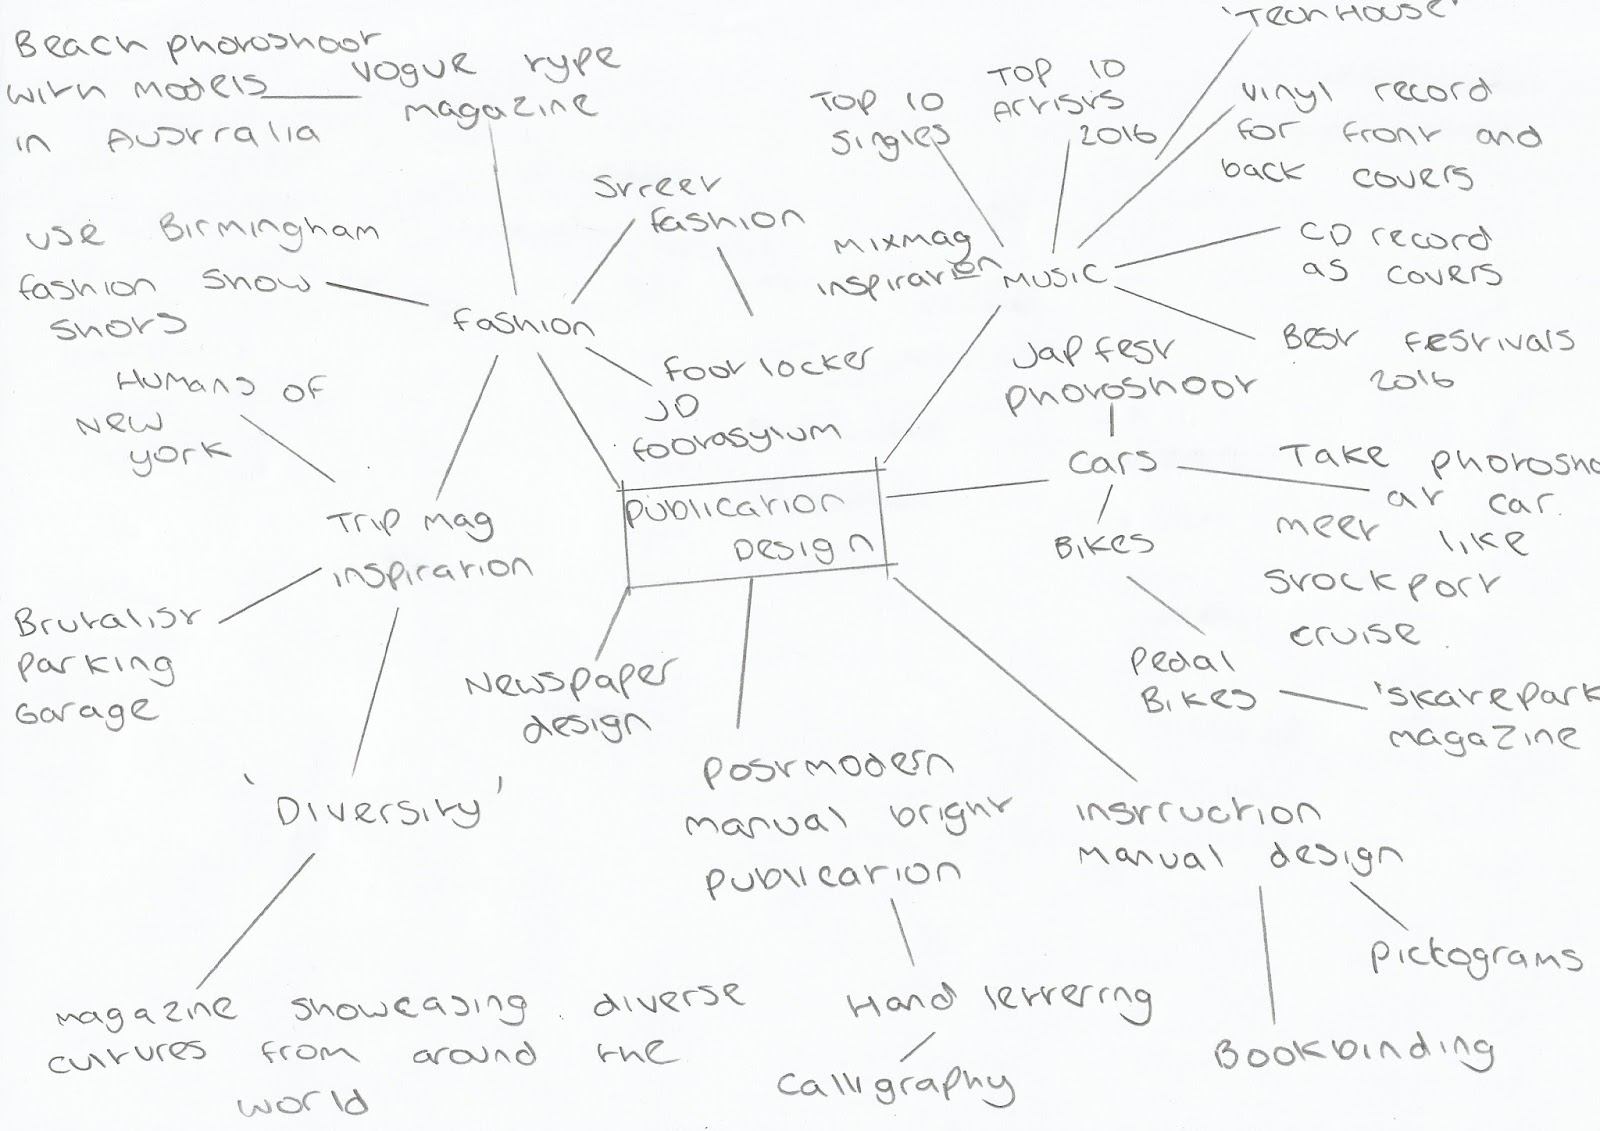 Beach photoshoot
with models
in Australia
Vogue type
magazine
Street
fashion
use Birmingham
fashion show
shots
fashion
Humans of
New
York
foot locker
JD
footasylum
Trip mag
inspiration
Brutalist
parking
Garage
'Diversity'
magazine showcasing diverse
cultures from around the
world
'Tech House'
TOP 10
Singles
TOP 10
Artists
2016
vinyl record
for front and
back covers
mixmag
inspiration
MUSIC
CD record
as covers
Best festivals
2016
Jap fest
photoshoot
cars
Take photosho
at car
meet like
Stockport
cruise.
Bikes
Pedal
Bikes
'skatepark
magazine
Publication
Design
Newspaper
design
Postmodern
manual bright
publication
Hand lettering
Calligraphy
instruction
Manual design
Pictograms
Bookbinding